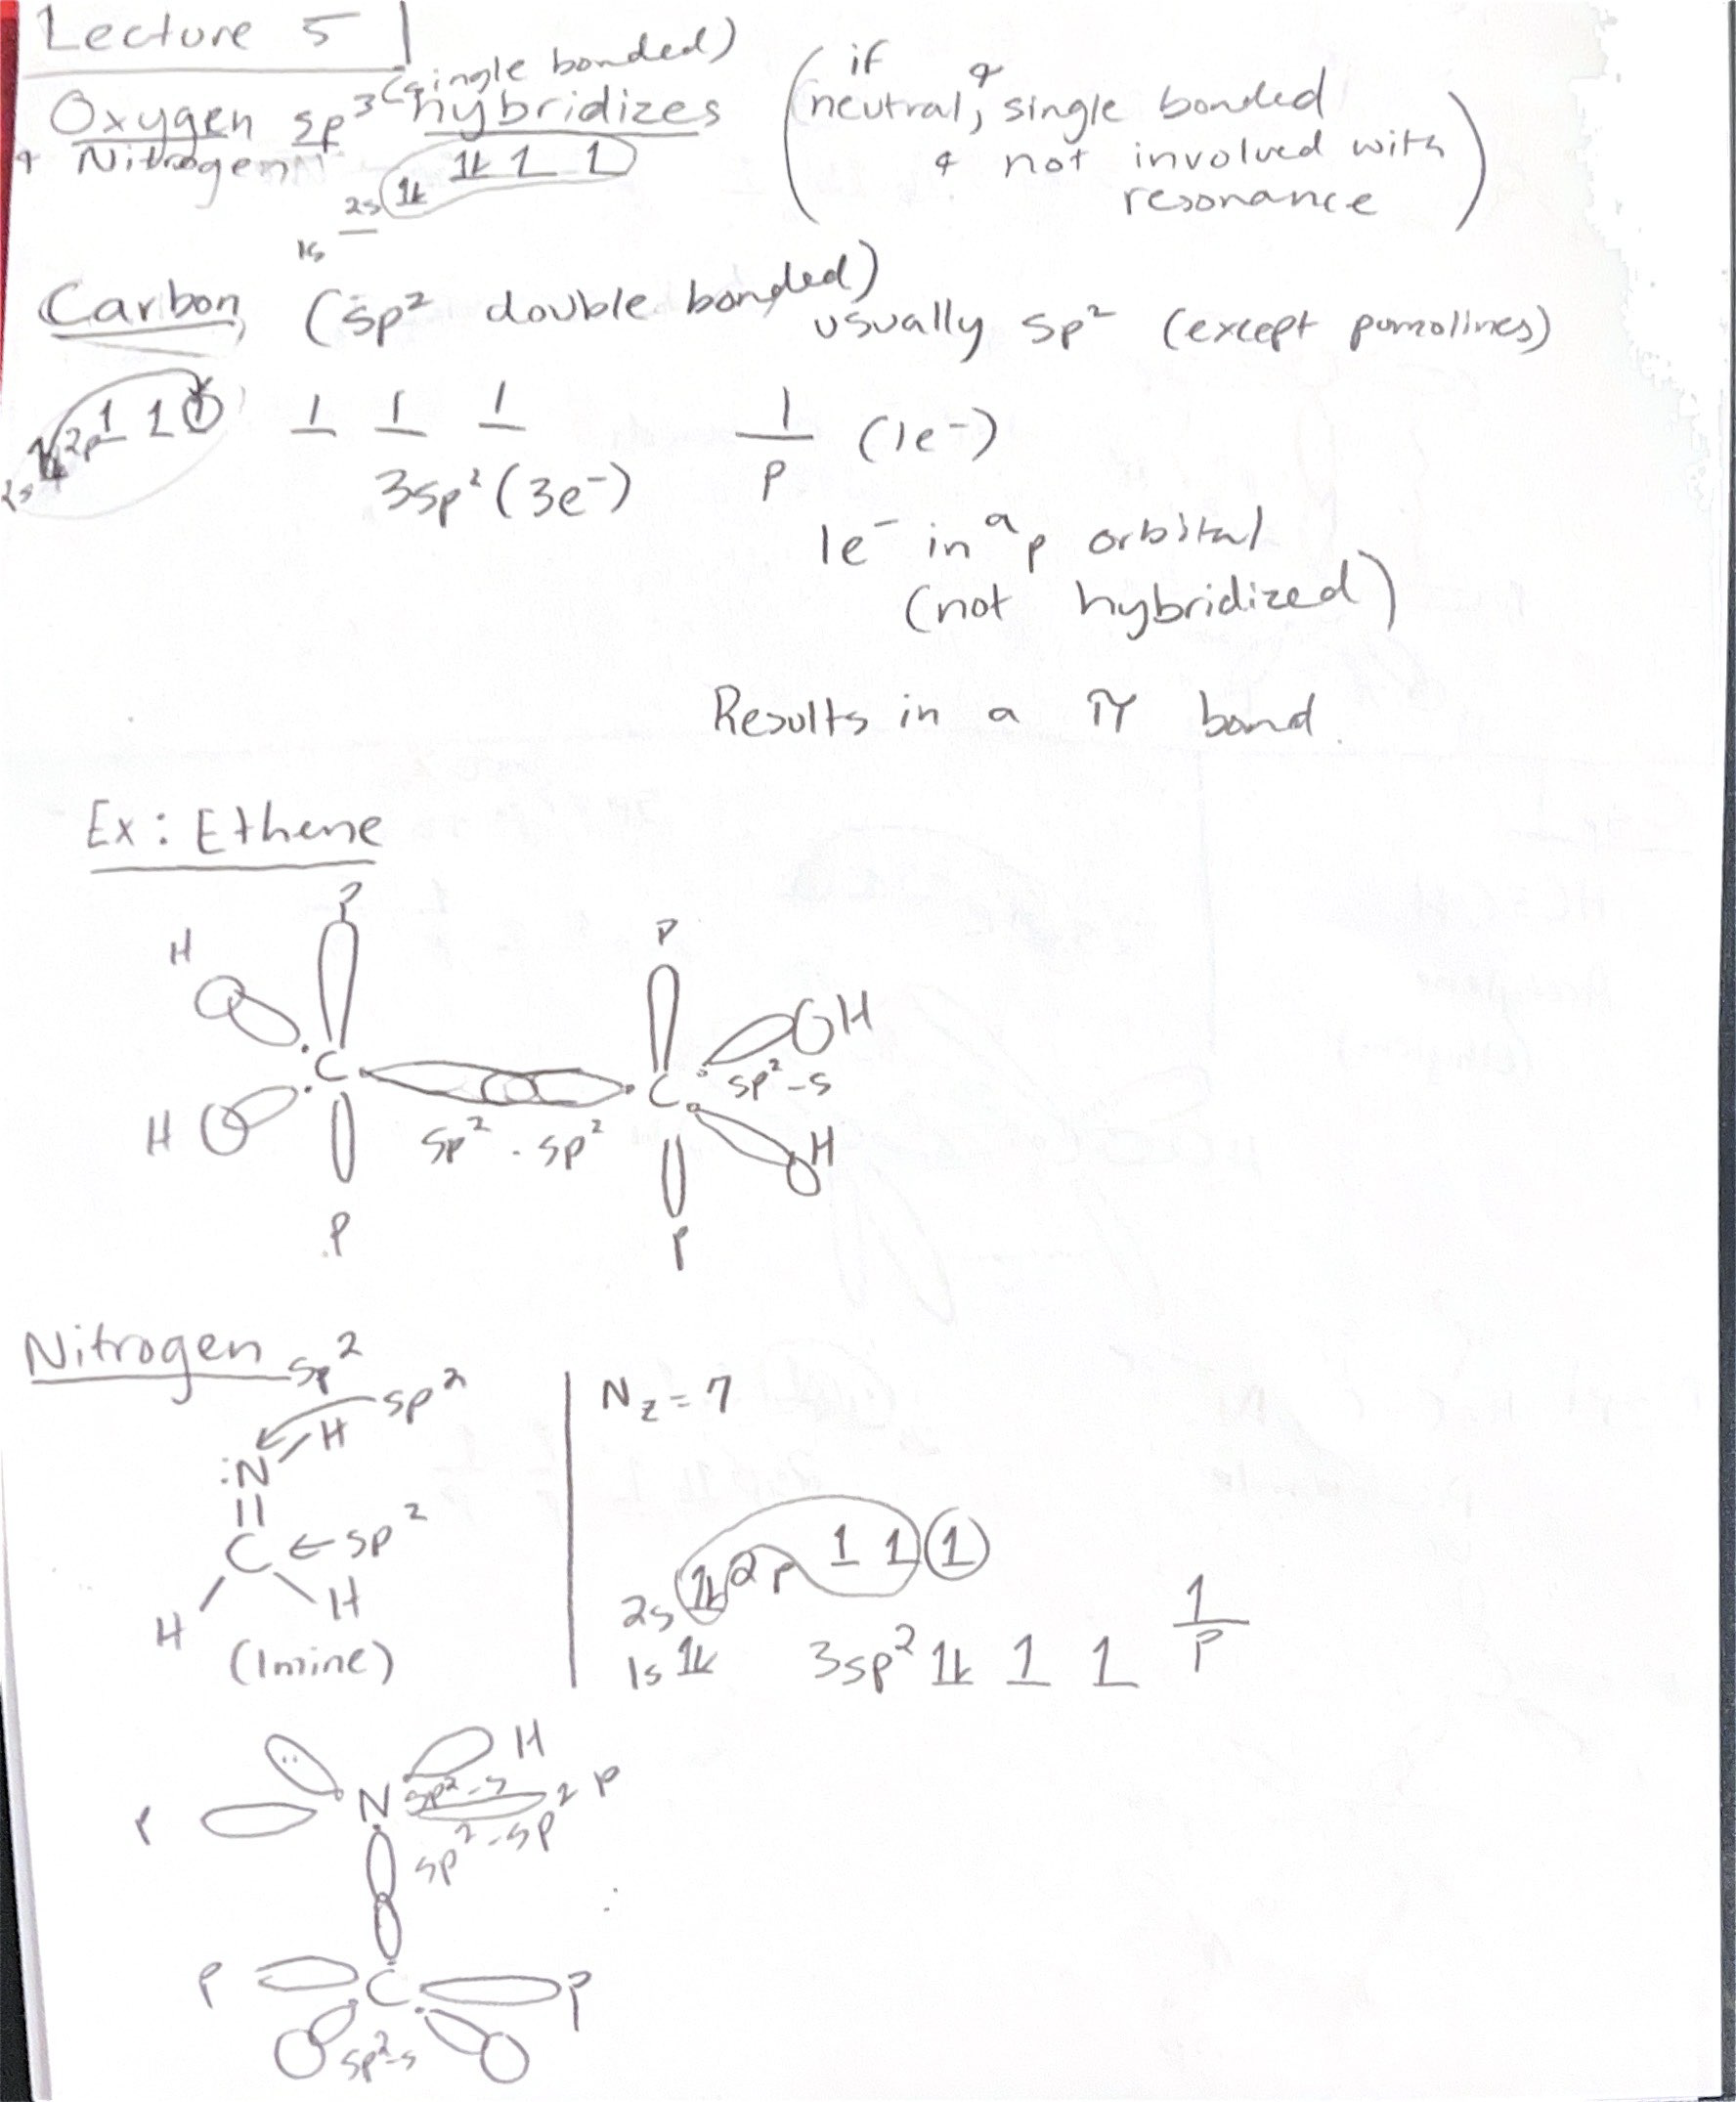 Lecture 5
Oxygen sp³ (single bonded) hybridizes
& Nitrogen
(if neutral, & single bonded
& not involved with
resonance)
2s 1l 1l 1 1
1s
Carbon (sp² double bonded)
usually sp² (except
2s 2p 1 1 1
1 1 1
3sp² (3e⁻)
1 (1e⁻)
p
1e⁻ in a p orbital
(not hybridized)
Results in a π bond.
Ex: Ethene
P
H
P
H
C
C
sp²-s
H
sp² - sp²
H
P
P
Nitrogen sp²
sp²
H
:N
||
C ← sp²
H H
(Imine)
N z = 7
2s 1l 2p 1 1 1
1s 1l
3sp² 1l 1 1
1
P
H
P N sp²-s P
sp²-sp²
P C P
sp²-s